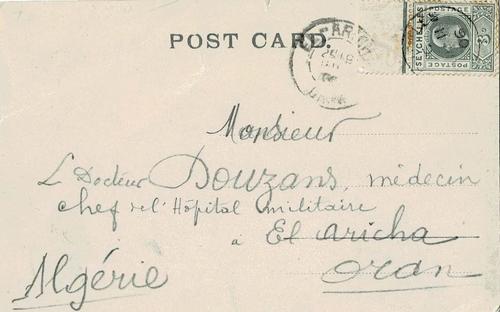 POST CARD.
SEYCHELLES
POSTAGE
POSTAGE
Monsieur
L Docteur Douzans, médecin
chef de l'Hôpital militaire
à El Aricha
Oran
Algérie